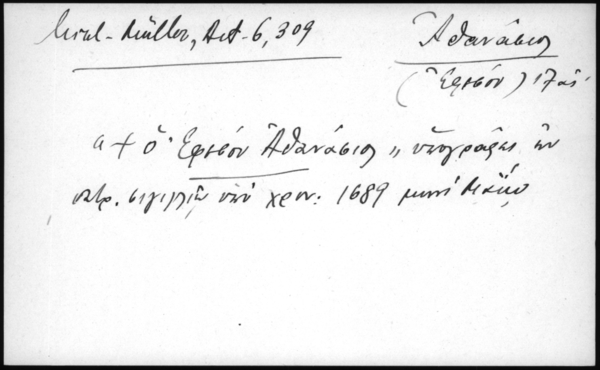 Mikl-Müller, Act-6, 309
Ἀθανάσιος
(Ἐφέσου) 17 αἰ.
"+ ὁ Ἐφέσου Ἀθανάσιος" ὑπογράψας ἐν
πατρ. σιγιλλίῳ ὑπὸ χρον: 1689 μηνὶ Μαΐῳ